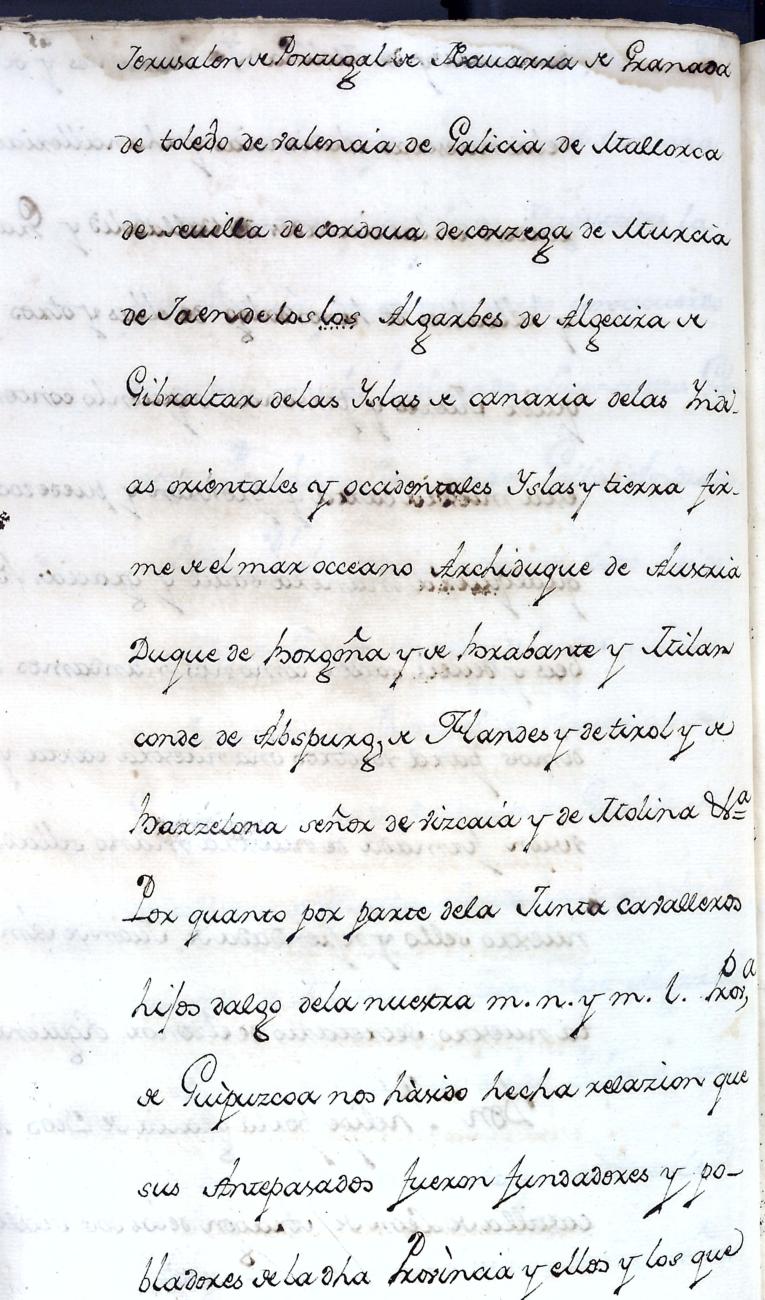 Jerusalen de Portugal de Nauarra de Granada
de toledo de valencia de Galicia de Mallorca
de seuilla de cordoua de corzega de Murcia
de Jaen de los los Algarbes de Algecira de
Gibraltar delas Yslas de canaria delas Yndi-
as orientales y occidentales Yslas y tierra fir-
me de el mar occeano Archiduque de Austria
Duque de borgoña y de brabante y Milan
conde de Abspurg, de Flandes y de tirol y de
barzelona señor de vizcaiá y de Molina &ª
Por quanto por parte dela Junta cavalleros
hijos dalgo dela nuestra m. n. y m. l. Prov,ª
de Guipuzcoa nos hà sido hecha relazion que
sus Antepasados fueron fundadores y po-
bladores de la dha Provìncia y ellos y los que